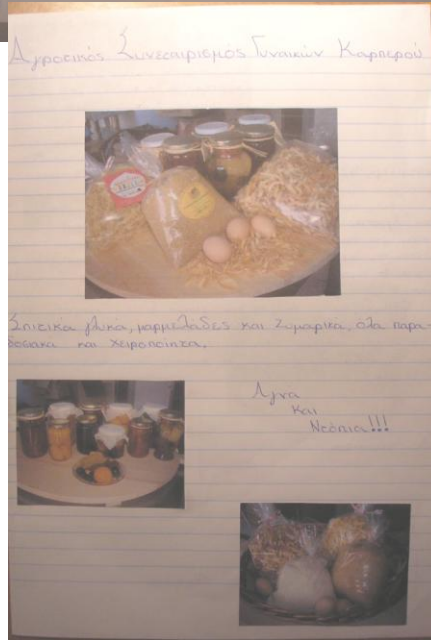 Αγροτικός Συνεταιρισμός Γυναικών Καρπερού
Σπιτικά γλυκά, μαρμελάδες και ζυμαρικά, όλα παρα-
δοσιακά και χειροποίητα.
Αγνά
και
Ντόπια!!!